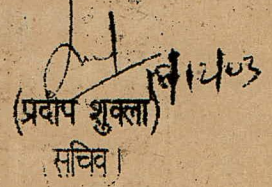 (प्रदीप शुक्ला)
सचिव।